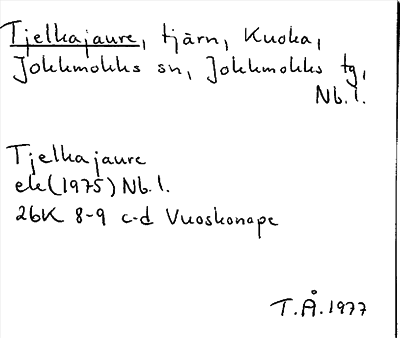 Tjelkajaure, tjärn, Kuoka,
Jokkmokks sn, Jokkmokks tg,
Nb. l.
Tjelkajaure
ek (1975) Nb. l.
26K 8-9 c-d Vuoskonape
T.Å. 1977